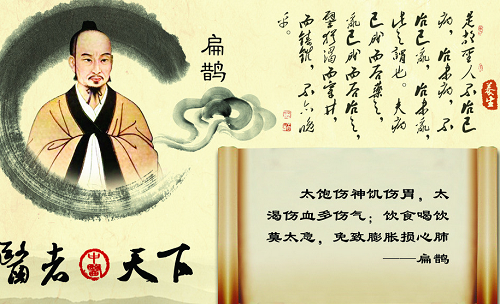 扁鹊
是故聖人不治已
病，治未病，不
治已亂，治未亂，
此之謂也。夫病
已成而后藥之，
亂已成而后治之，
譬猶渴而穿井，
而鑄錐，不亦晚
乎。
养生
太饱伤神饥伤胃，太
渴伤血多伤气；饮食喝饮
莫太急，免致膨胀损心肺
——扁鹊
醫者中醫天下